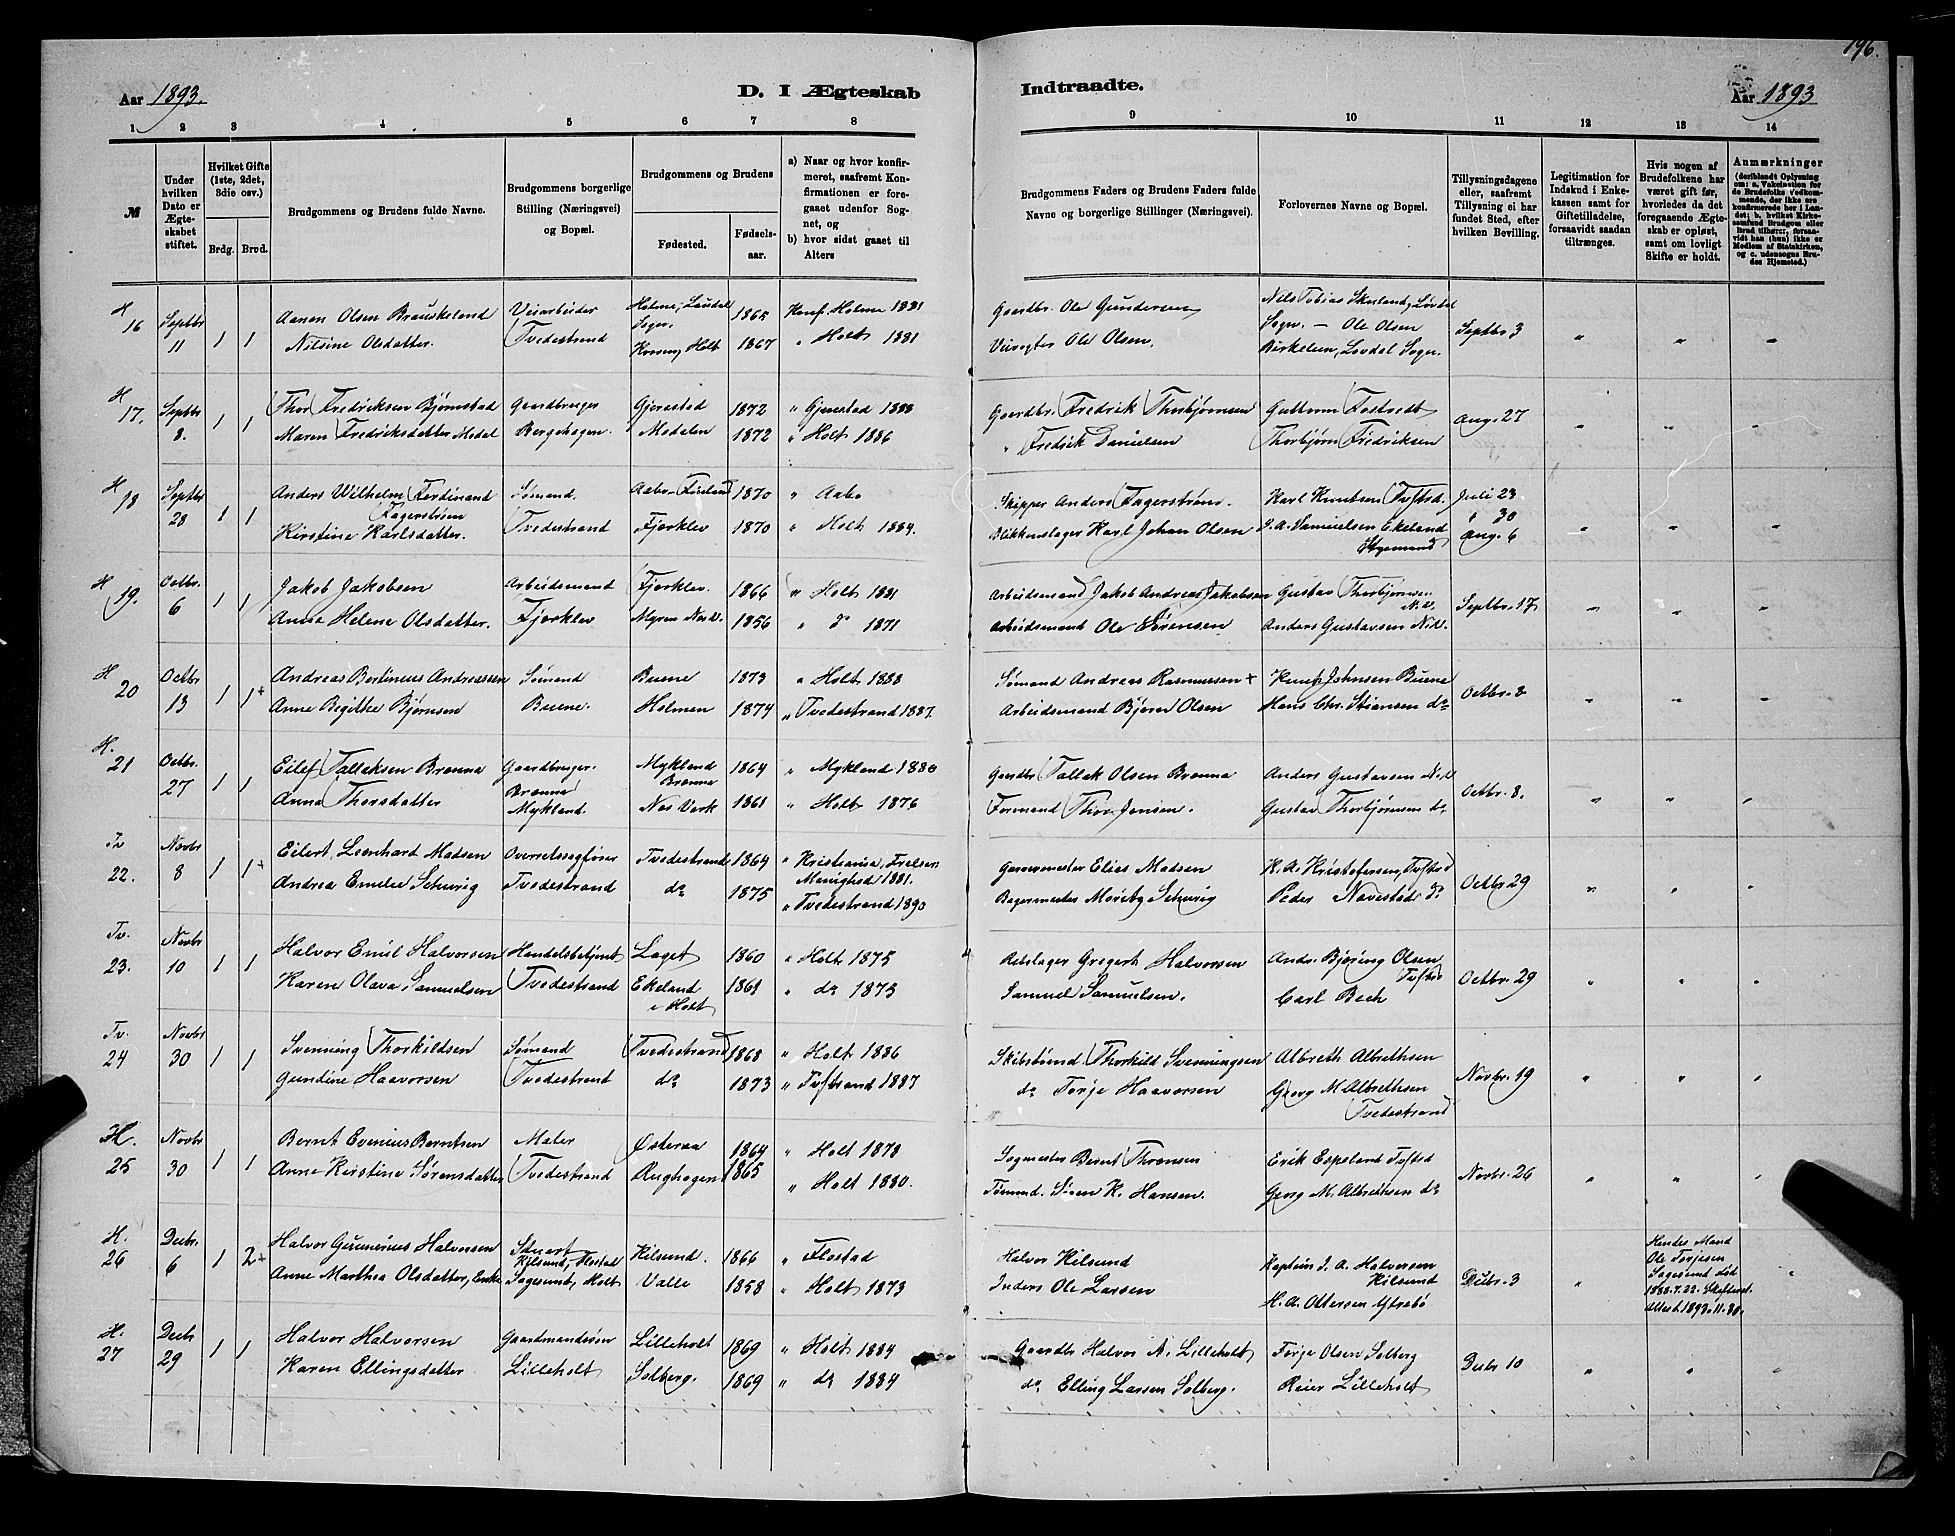 196.
Aar 1893.
D. I Ægteskab
Indtraadte.
Aar 1893
1 2 3 4 5 6 7 8 9 10 11 12 13 14
№
Under hvilken Dato er Ægteskabet stiftet.
Hvilket Gifte (1ste, 2det, 3die osv.)
Brdg. Brud.
Brudgommens og Brudens fulde Navne.
Brudgommens borgerlige Stilling (Næringsvei) og Bopæl.
Brudgommens og Brudens
Fødested.
Fødselsaar.
a) Naar og hvor konfirmeret, saafremt Konfirmationen er foregaaet udenfor Sognet, og
b) hvor sidst gaaet til Alters
Brudgommens Faders og Brudens Faders fulde Navne og borgerlige Stillinger (Næringsvei).
Forlovernes Navne og Bopæl.
Tillysningsdagene eller, saafremt Tillysning ei har fundet Sted, efter hvilken Bevilling.
Legitimation for Indskud i Enkekassen samt for Giftetilladelse, forsaavidt saadan tiltrænges.
Hvis nogen af Brudefolkene har været gift før, hvorledes da det foregaaende Ægteskab er opløst, samt om lovligt Skifte er holdt.
Anmærkninger (deriblandt Oplysning om: a. Vakcination for de Brudefolks Vedkommende, der ikke ere konfirmerede her i Landet; b. hvilket Kirkesamfund Brudgom eller Brud tilhører, forsaavidt han (hun) ikke er Medlem af Statskirken, og c. udensogns Brudes Hjemsted.)
H 16 Septbr 11 1 1 Aanon Olsen Brauskeland Veiarbeider Holme, Laudal Sogn. 1865 Konf. Holme 1881 Gaardbr. Ole Gundersen Nils Tobias Skuland, Løvdal
Nilsine Olsdatter. Tvedestrand Holt 1867 " Holt 1881 Veivogter Ole Olsen. Sogn. – Ole Olsen Birkelien, Lovdal Sogn. Septbr 3 " " "
H 17. Septbr 8. 1 1 Thor Fredriksen Bjørnstad Gaardbruger Gjerestad 1872 " Gjerestad 1888 Gaardbr. Fredrik Thorbjørnsen Guttorm Fostvedt
Maren Fredriksdatter Modal Bergehagen. Modalen 1872 " Holt 1886 " Fredrik Danielsen Thorbjørn Fredriksen Aug. 27 " " "
H 18 Septbr 28 1 1 Anders Wilhelm Ferdinand Fagerstrøm Sømand. Aabo Finland 1870 " Aabo Skipper Anders Fagerstrøm. Karl Knutsen Tvstrd. Juli 23
Kirstine Karlsdatter. Tvedestrand Fjerklev 1870 " Holt 1884. Blikkenslager Karl Johan Olsen J. A. Samuelsen Ekeland " 30 Aug. 6 " " "
H 19. Octbr. 6 1 1 Jakob Jakobsen Arbeidsmand Fjerklev. 1866 " Holt 1881 Arbeidsmand Jakob Andreas Jakobsen Gustav Thorbjørnsen N.V.
Anna Helene Olsdatter. Fjerklev Myren Nesv. 1856 " do 1871 Arbeidsmand Ole Sørensen Anders Gustavsen N.V. Septbr. 17 " " "
H 20 Octbr 13 1 1+ Andreas Bertinius Andreassen Sømand Buene 1873 " Holt 1888 Sømand Andreas Rasmussen + Knut Johnsen Buene
Anne Begithe Bjørnsen Buene. Holmen 1874 " Tvedestrand 1887. Arbeidsmand Bjørn Olsen Hans Chr. Stiansen do Octbr. 8 " " "
H. 21 Octbr. 27 1 1 Eilef Tallaksen Brønna Gaardbruger. Mykland Brønna 1864 " Mykland 1880 Gaardbr Tallak Olsen Brønna Anders Gustavsen N.V
Anna Thorsdatter Brønna Mykland. Nes Verk 1861 " Holt 1876 Formand Thor Jensen. Gustav Thorbjørnsen do Octbr. 8. " " "
Tv 22. Novbr 8 1 1+ Eilert Leonhard Madsen Overretssagfører Tvedestrand 1864 " Kristiania, Frelsers Menighed 1881. Garvermester Elias Madsen H. A. Kristofersen, Tvstrd
Andrea Emelie Schurig Tvedestrand do 1875 " Tvedestrand 1890 Bagermester Moritz Schurig Peder Navestad do Octbr 29 " " "
Tv. 23. Novbr 10 1 1 Halvor Emil Halvorsen Handelsbetjent Laget 1860 " Holt 1875 Rebslager Gregert Halvorsen Andr. Bjøring Olsen Tvstr
Karen Olava Samuelsen Tvedestrand Ekeland i Holt 1861 " do 1875 Samuel Samuelsen. Carl Bech Octbr. 29 " " "
Tv. 24 Novbr 30 1 1 Svenning Thorkildsen Sømand Tvedestrand 1868 " Holt 1886 Skibstømd. Thorkild Svenningsen Albreth Albrethsen
Gundine Haavorsen Tvedestrand do 1873 " Tvstrand 1887 do Torje Haavorsen Georg M. Albrethsen Tvedestrand Novbr. 19 " " "
H. 25 Novbr 30 1 1 Bernt Evenius Berntsen Maler Østeraa 1864 " Holt 1878 Sagmester Bernt Thronsen Erik Espeland Tvstrd
Anne Kirstine Sørensdatter Tvedestrand Aughagen 1865 " Holt 1880. Tømmd. Søren K. Hansen. Georg M. Albrethsen do Novbr. 26 " " "
H. 26 Decbr. 6 1 2+ Halvor Gunnerius Halvorsen Stuert Kilsund, Flostad Kilsund. 1866 " Flostad Halvor Kilsund Kaptein J. A. Halvorsen Kilsund
Anne Marthea Olsdatter, Enke Sagesund, Holt Valle 1858 " Holt 1873 Inders Ole Larsen H. A. Ottersen Ytrebø Decbr. 3 " Hendes Mand Ole Torjesen Sagesund død 1888. 7. 22. Skifteret. attest 1893. 11. 30. "
H. 27 Decb 29 1 1 Halvor Halvorsen Gaardmandssøn Lilleholt 1869 " Holt 1884 Gaardbr Halvor N. Lilleholt Torje Olsen Solberg
Karen Ellingsdatter Lilleholt Solberg. 1869 " do 1884 do Elling Larsen Solberg. Reier Lilleholt Decbr 10 " " "